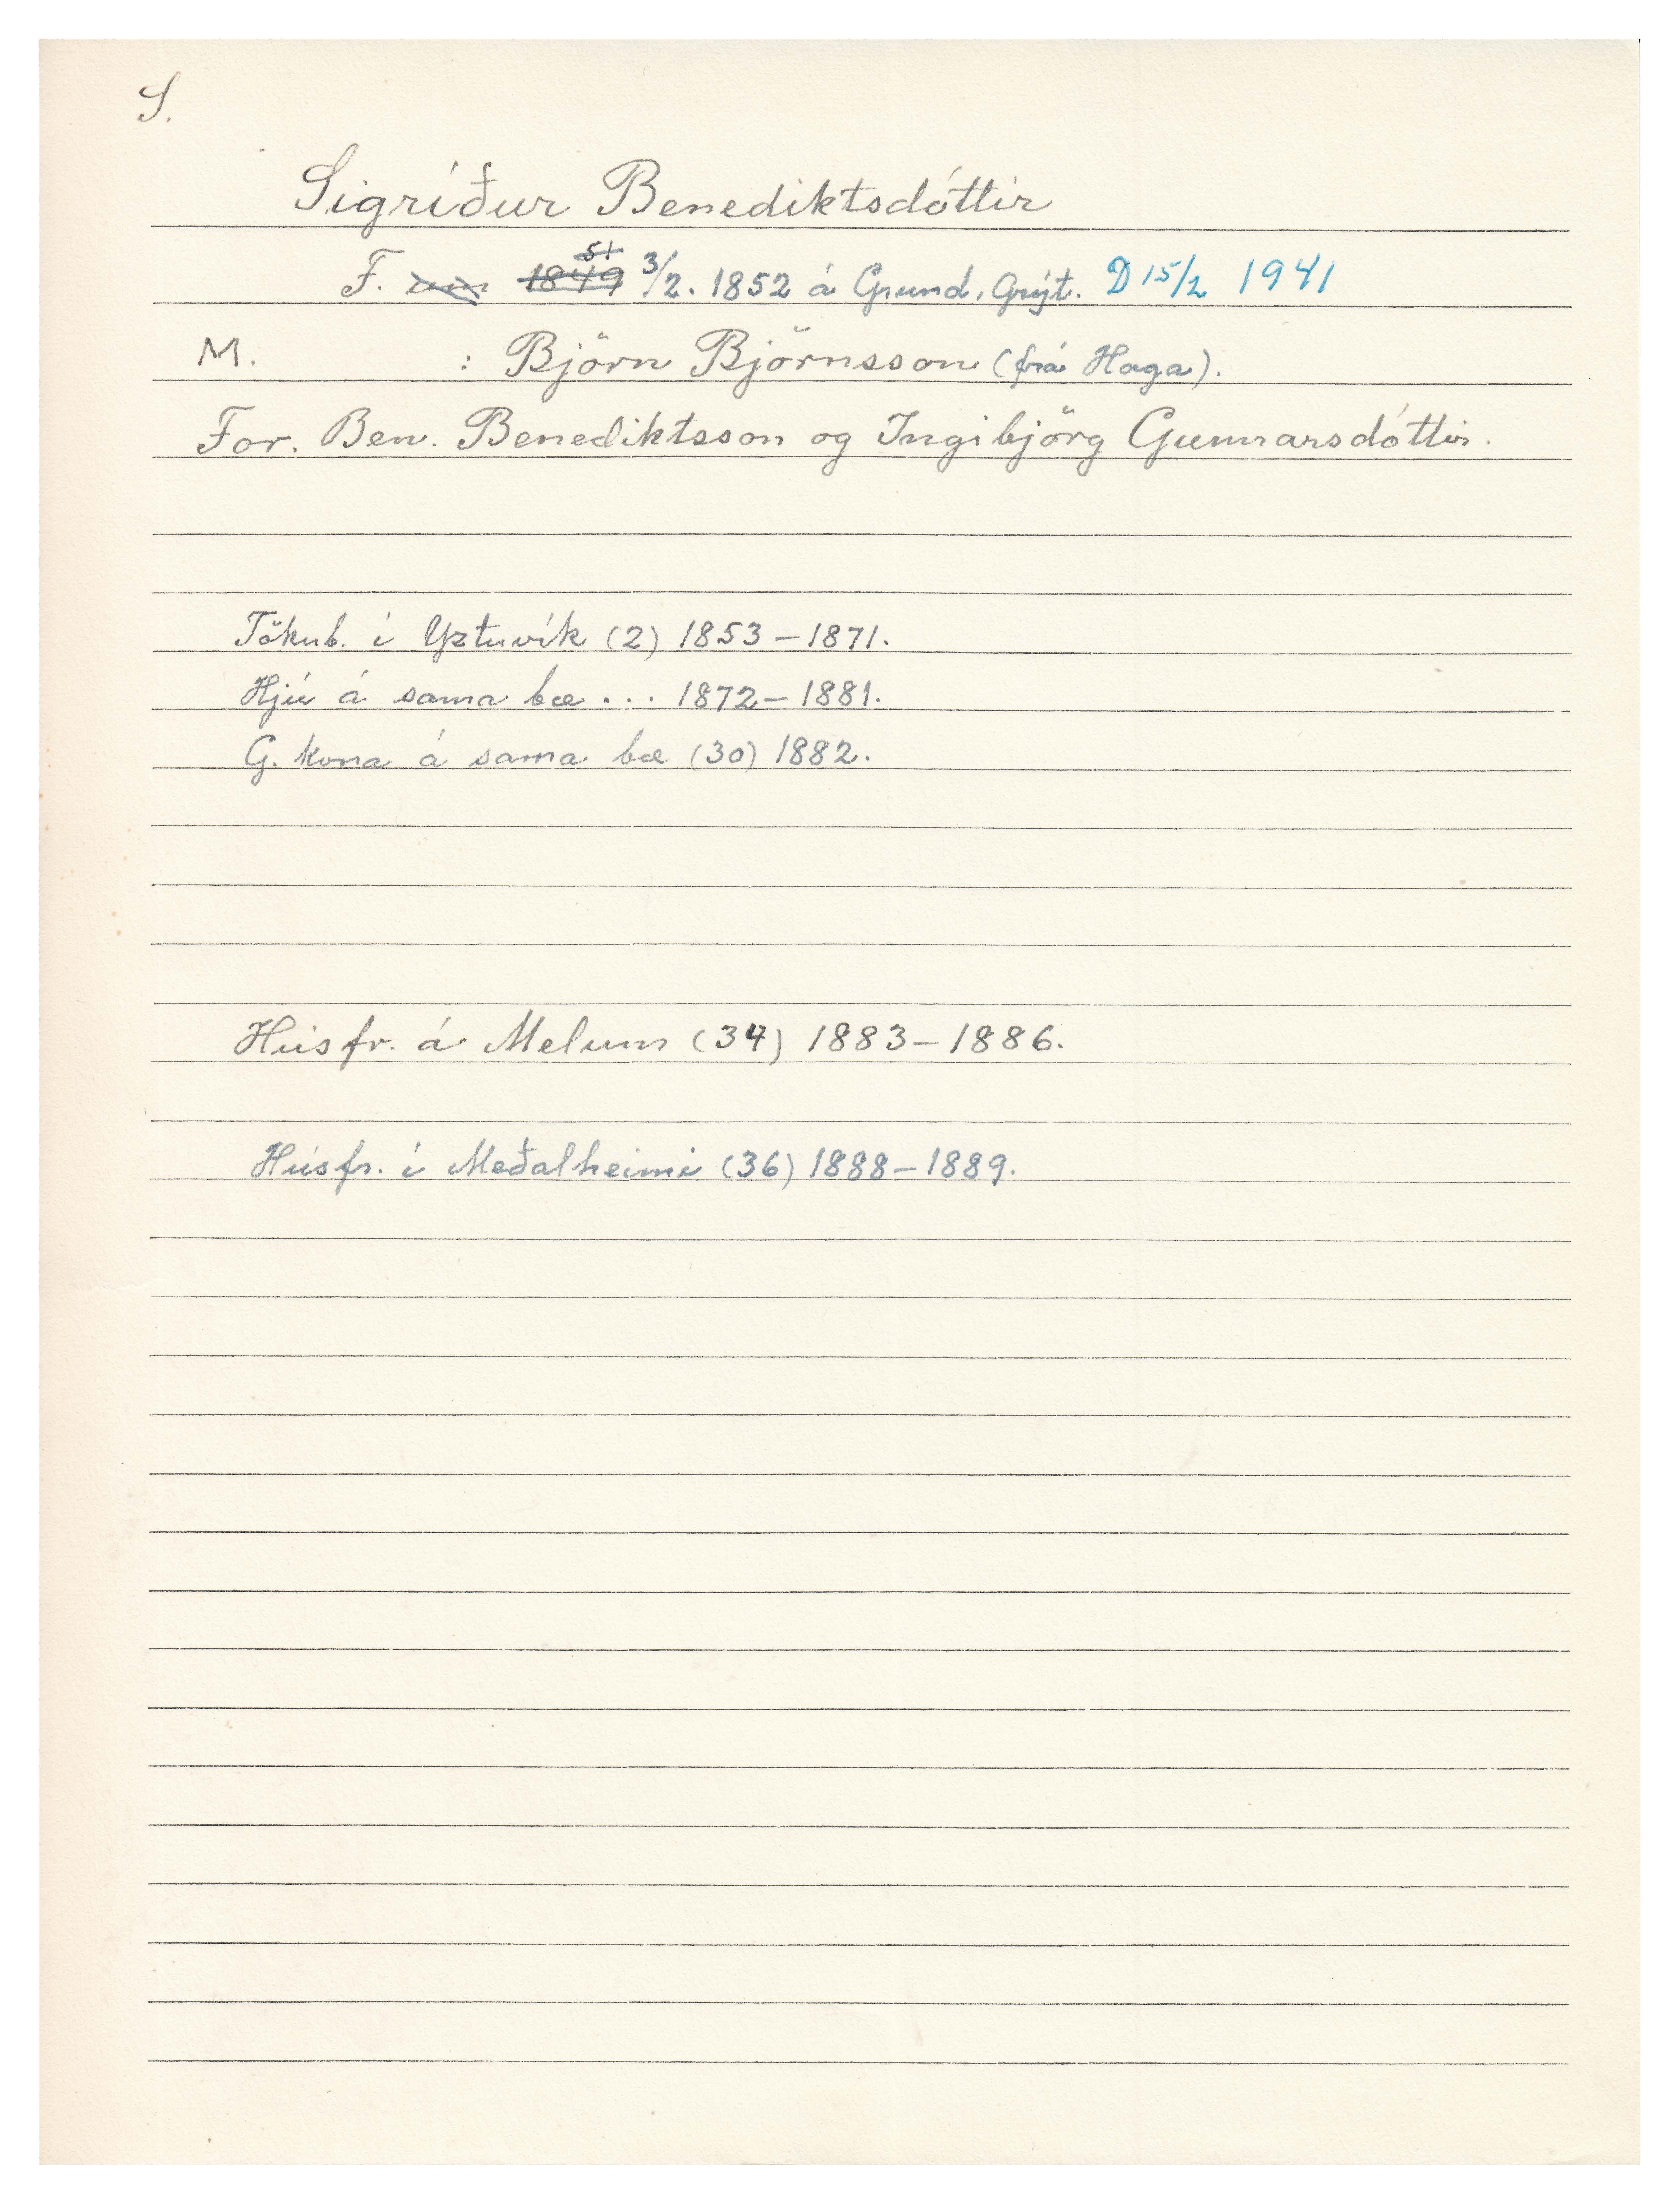 S.
Sigríður Benediktsdóttir
F. um 1849 51 3/2. 1852 á Grund, Grýt. D 15/2 1941
M. : Björn Björnsson (frá Haga).
For. Ben. Benediktsson og Ingibjörg Gunnarsdóttir.
Tökub. í Yztuvík (2) 1853-1871.
Hjú á sama bæ ... 1872-1881.
G. kona á sama bæ (30) 1882.
Húsfr. á Melum (34) 1883-1886.
Húsfr. í Meðalheimi (36) 1888-1889.